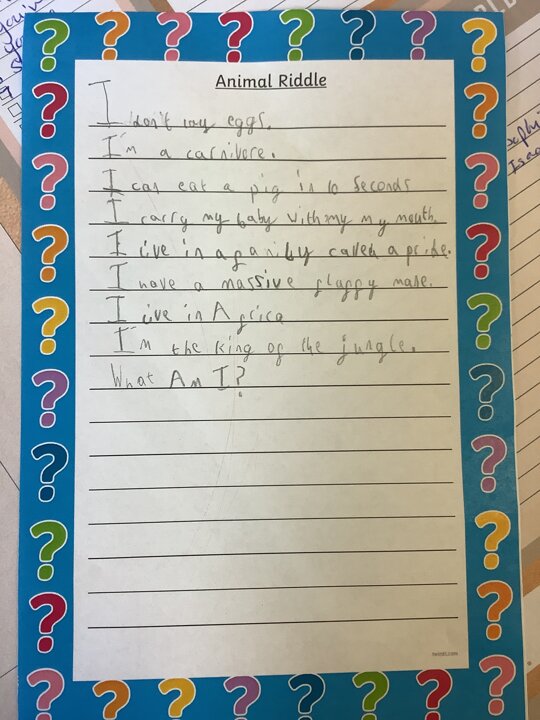 Animal Riddle
I don't lay eggs.
I'm a carnivore.
I can eat a pig in 10 seconds
I carry my baby with my my mouth.
I live in a family called a pride.
I have a massive fluffy mane.
I live in Africa
I'm the king of the jungle.
What Am I?
twinkl.com